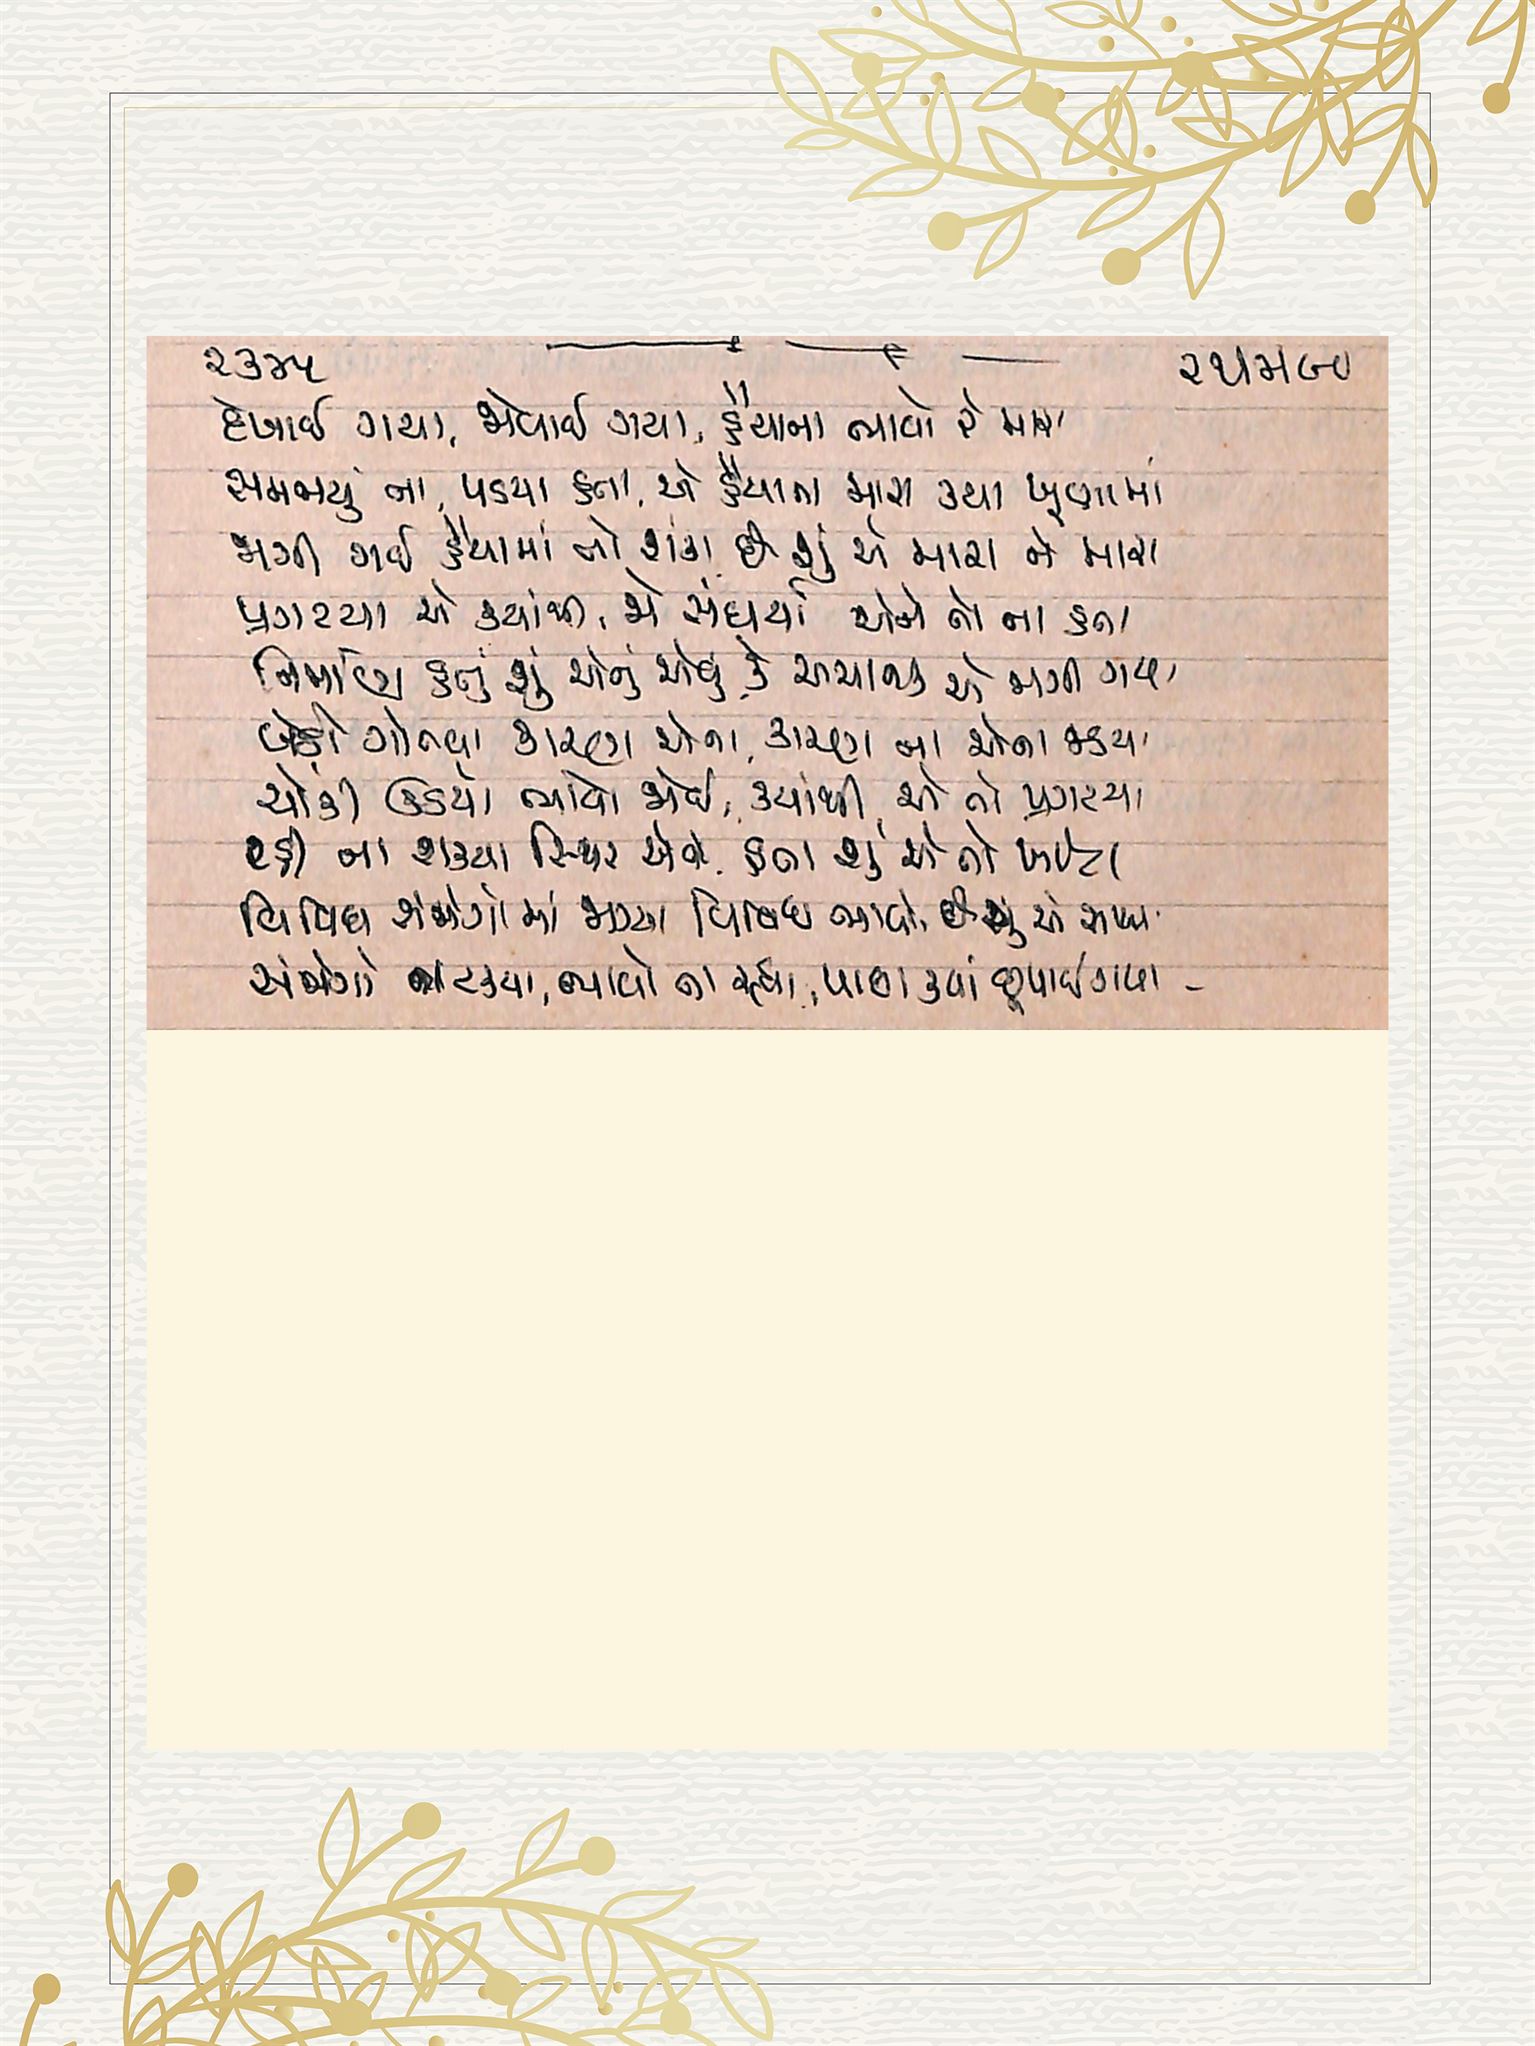 ૨૩૪૫
દેખાઈ ગયા, જોવાઈ ગયા, હૈયાના ભાવો રે મારા
સમજાયું ના, પડયા હતા, એ હૈયાના મારા કયા ખૂણામાં
જાગી ગઈ હૈયામાં તો શંકા, છે શું એ મારા ને મારા
પ્રગટયા એ ક્યાંથી, જે સંઘર્યા એને તો ના હતા
નિર્માણ હતું શું એનું એવું કે અચાનક એ જાગી ગયા
બેઠો ગોતવા કારણ એના, કારણ ના એના જડયા
ચોંકી ઉઠયો ભાવો જોઈ, ક્યાંથી એ તો પ્રગટયા
ટકી ના શક્યા સ્થિર એવા, હતા શું એ તો ખોટા
વિવિધ સંજોગોમાં જાગ્યા વિવિધ ભાવો, છે શું એ સાચા
સંજોગો ના ટક્યા, ભાવો ના રહ્યા, પાછા ક્યાં છુપાઈ ગયા